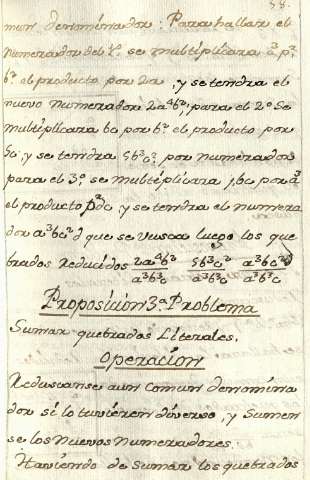 mun denominador: Para hallar el
numerador del 1.º se multiplicara a³. pr.
b³. el producto por 2a, y se tendra el
nuevo numerador 2a⁴b³; para el 2º se
multiplicara bc por b². el producto por
5c, y se tendra 5b³c², por numerador
para el 3º se multiplicara por a³
el producto pr. dc, y se tendra el numera
dor a³bc²d que se busca luego los que
brados Reducidos 2a⁴b³/a³b³c 5b³c²/a³b³c a³bc²d/a³b³c
Proposicion 3ª Problema
Sumar quebrados Literales.
Operacion
Reduscanse aun comun denomina
dor si lo tuvieren diverso, y Sumen
se los Nuevos Numeradores.
Haviendo de Sumar los quebrados